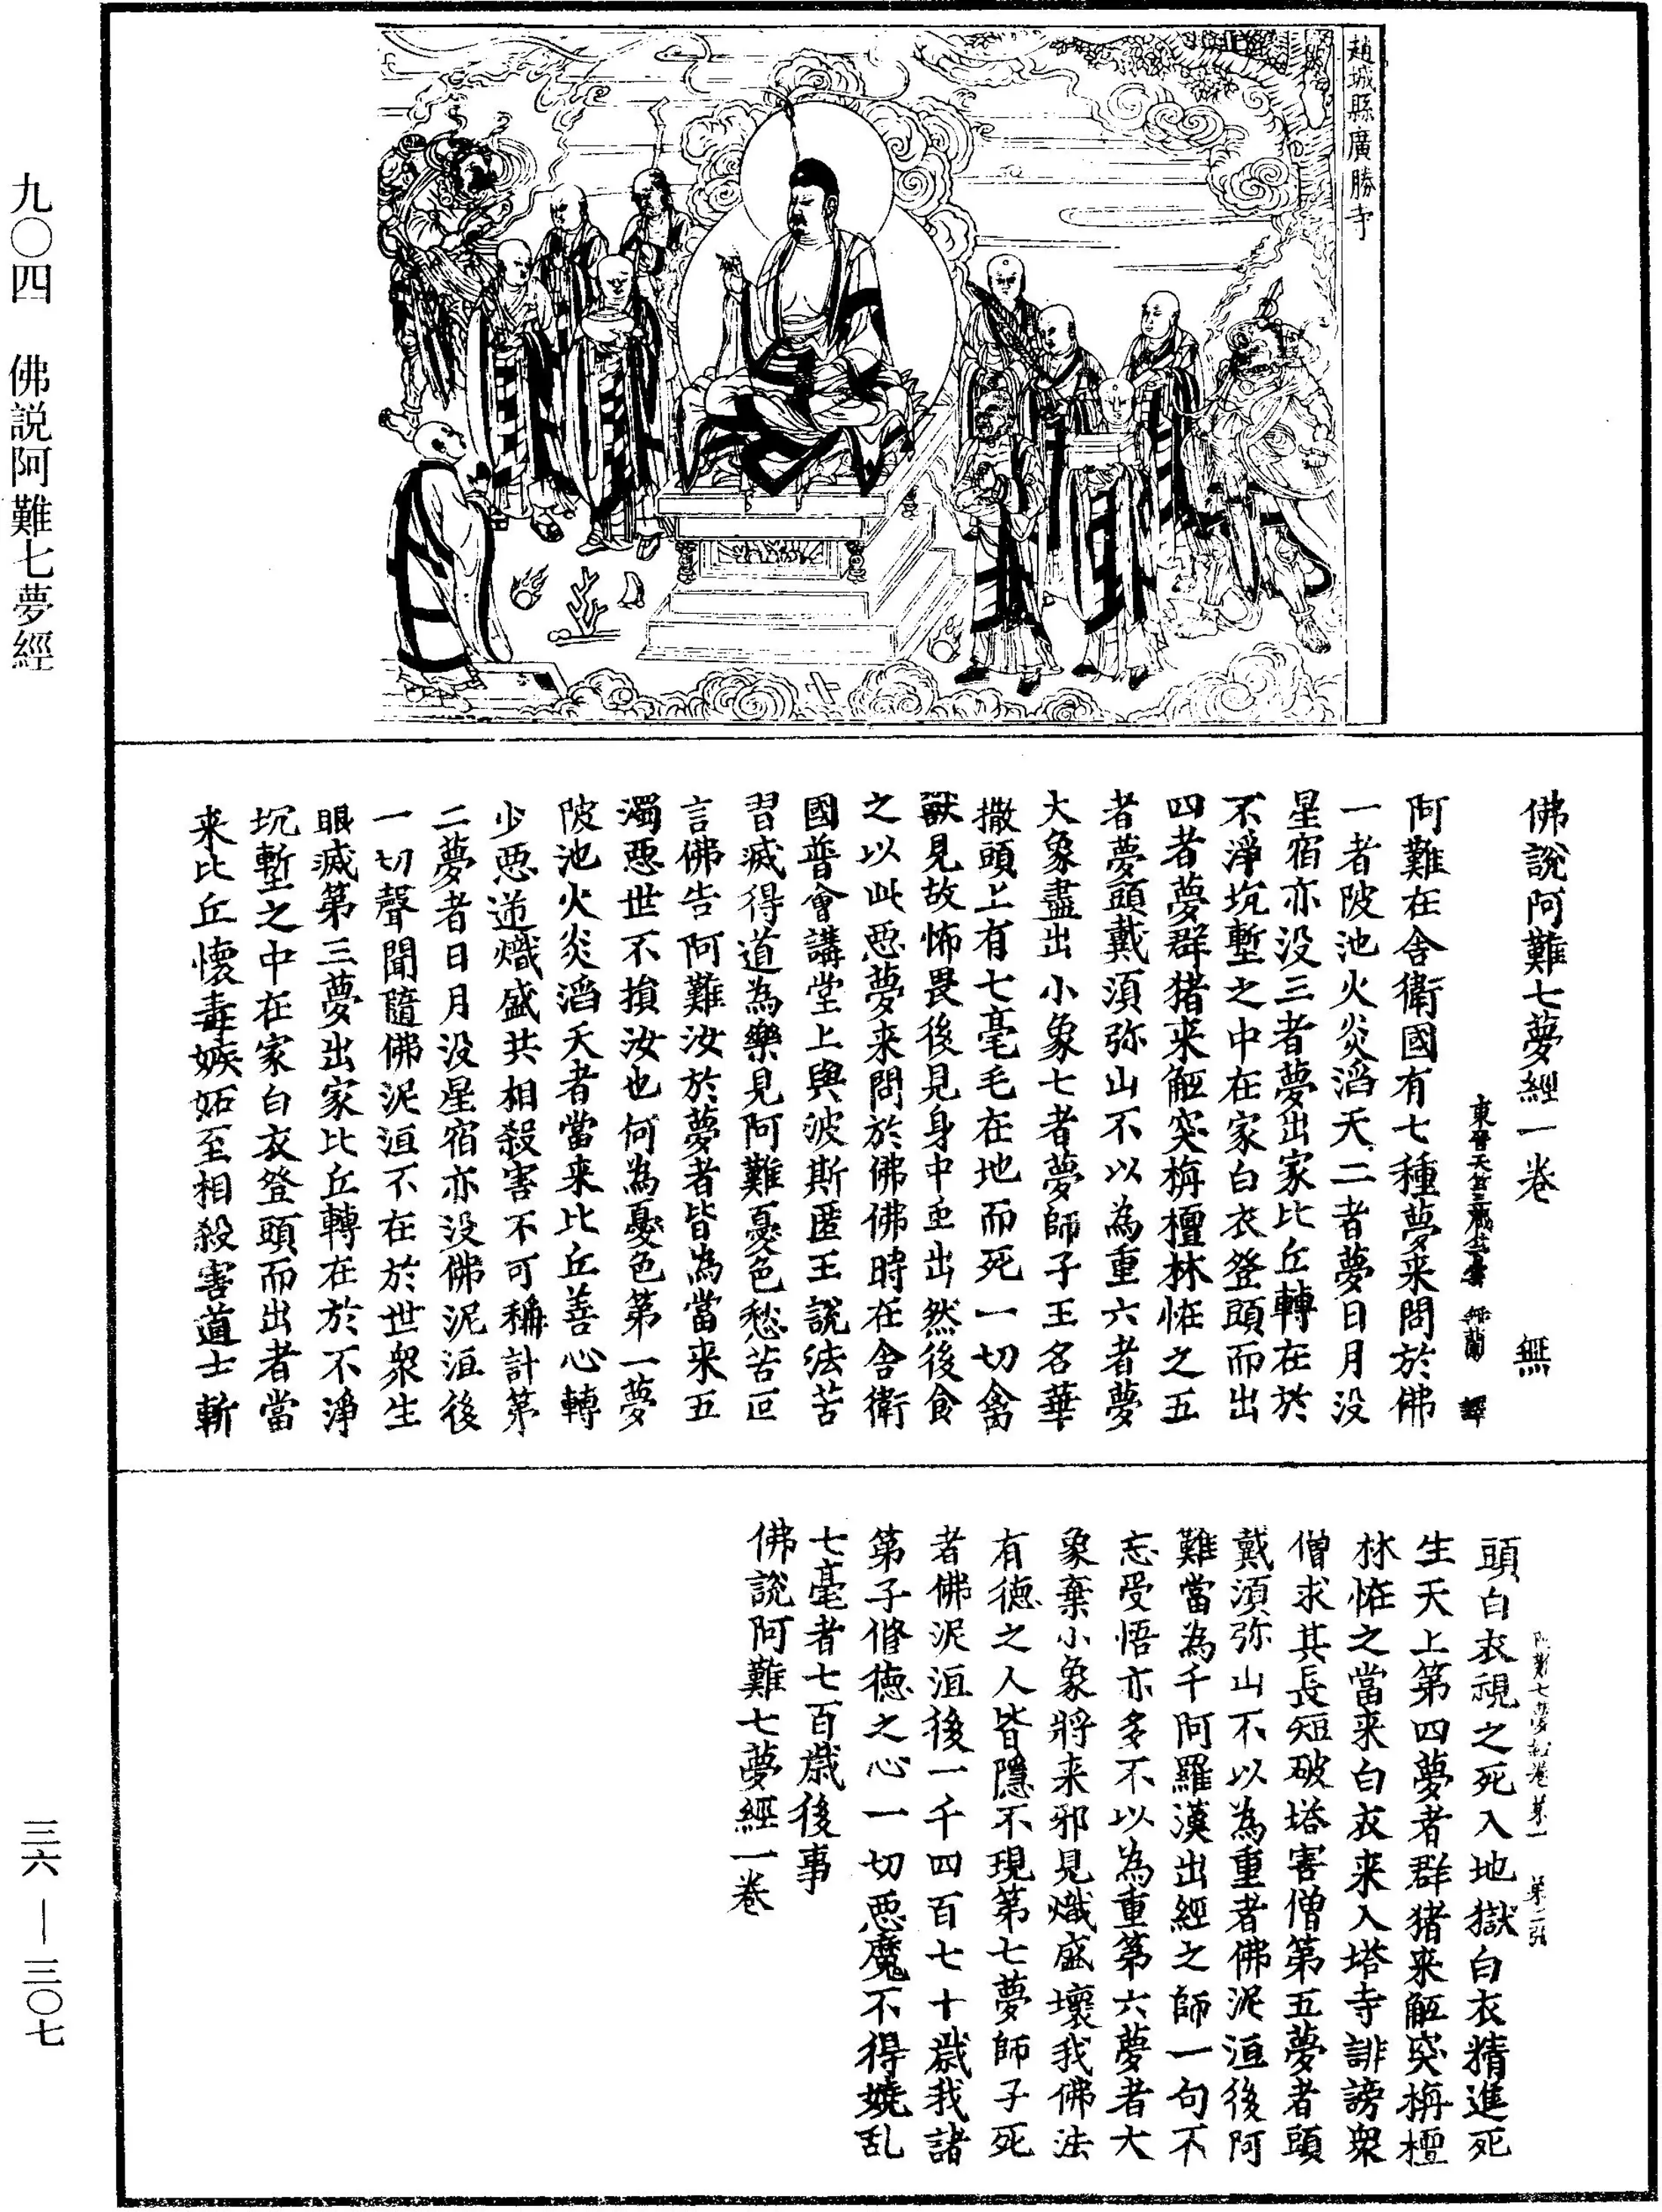 趙城縣廣勝寺
九〇四　佛説阿難七夢經
佛說阿難七夢經一卷　無
東晉天竺三藏竺曇無蘭　譯
阿難在舍衛國有七種夢来問於佛
一者陂池火炎滔天二者夢日月没
星宿亦没三者夢出家比丘轉在於
不淨坑塹之中在家白衣登頭而出
四者夢群猪来觝突栴檀林恠之五
者夢頭戴須弥山不以為重六者夢
大象盡出小象七者夢師子王名華
撒頭上有七毫毛在地而死一切禽
獸見故怖畏後見身中虫出然後食
之以此惡夢来問於佛佛時在舍衛
國普會講堂上與波斯匿王說法苦
習滅得道為樂見阿難憂色愁苦叵
言佛告阿難汝於夢者皆為當来五
濁惡世不損汝也何為憂色第一夢
陂池火炎滔天者當来比丘善心轉
少惡逆熾盛共相殺害不可稱計第
二夢者日月没星宿亦没佛泥洹後
一切聲聞隨佛泥洹不在於世衆生
眼滅第三夢出家比丘轉在於不淨
坑塹之中在家白衣登頭而出者當
来比丘懷毒嫉妬至相殺害道士斬
阿難七夢經卷第一　第二張
頭白衣視之死入地獄白衣精進死
生天上第四夢者群猪来觝突栴檀
林恠之當来白衣来入塔寺誹謗衆
僧求其長短破塔害僧第五夢者頭
戴須弥山不以為重者佛泥洹後阿
難當為千阿羅漢出經之師一句不
忘受悟亦多不以為重第六夢者大
象棄小象將来邪見熾盛壞我佛法
有德之人皆隱不現第七夢師子死
者佛泥洹後一千四百七十歲我諸
第子脩德之心一切惡魔不得嬈乱
七毫者七百歲後事
佛說阿難七夢經一卷
三六—三〇七